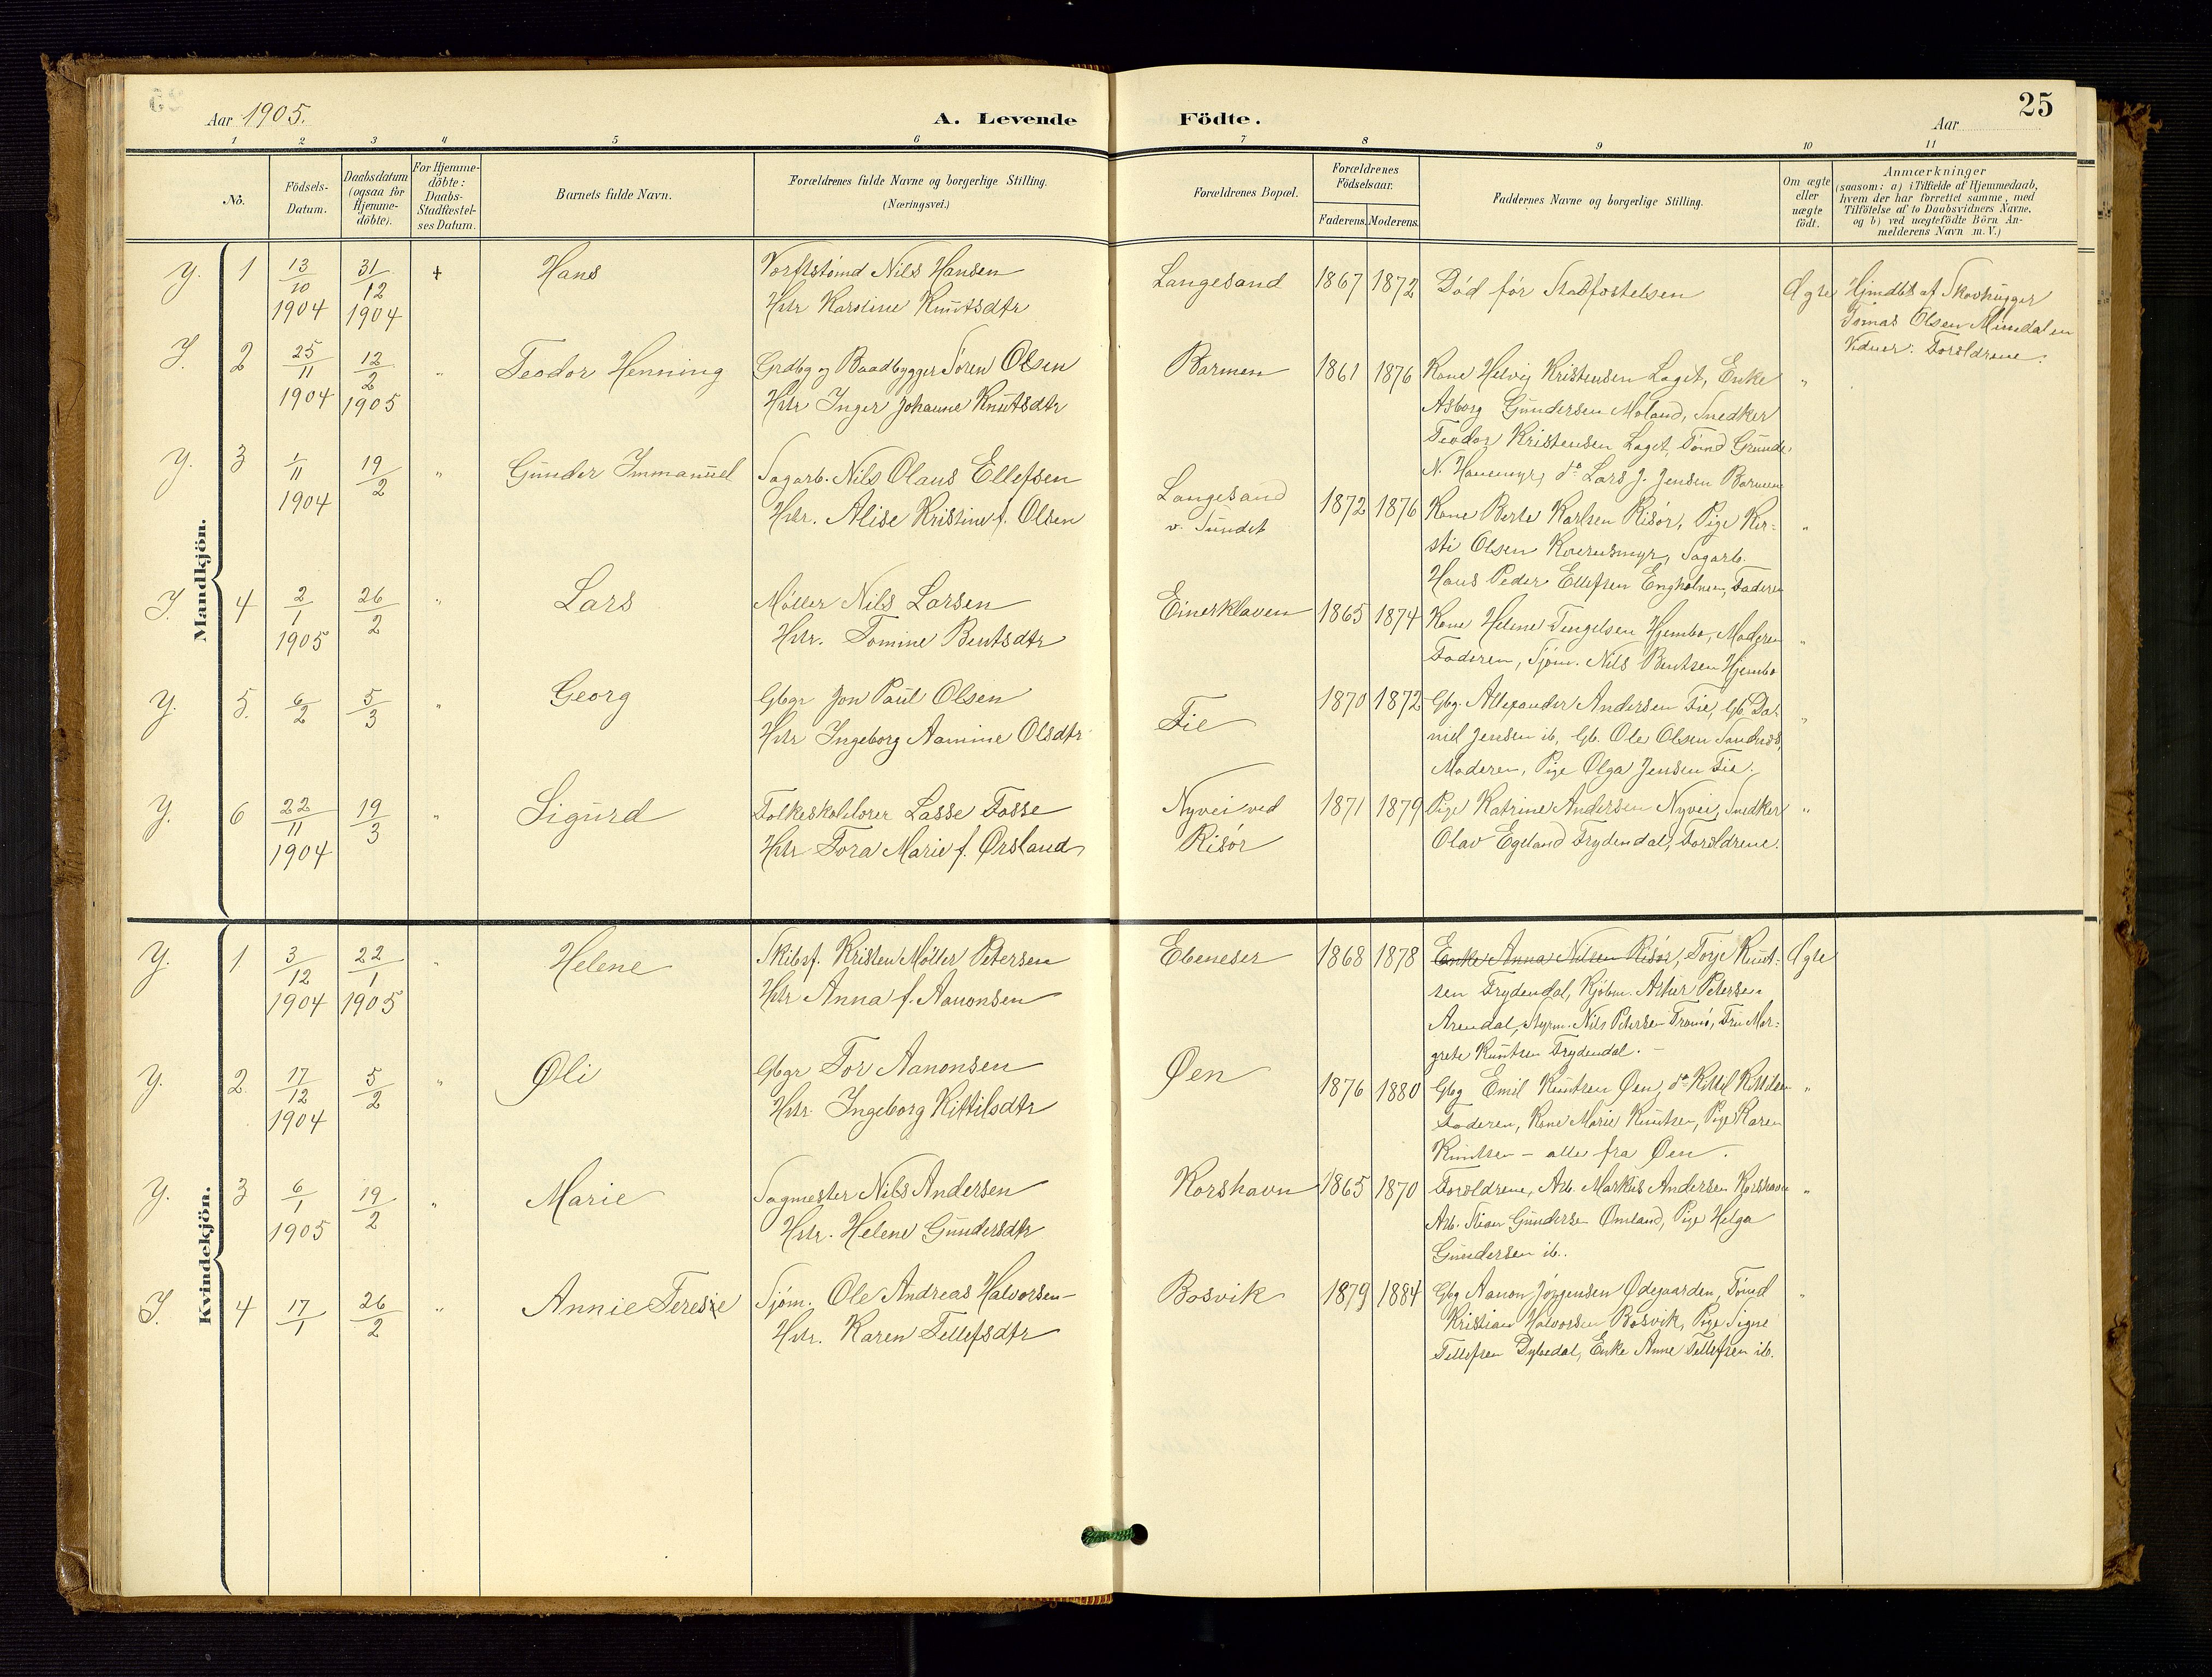 Aar 1905.
A. Levende Födte.
Aar
25
1 2 3 4 5 6 7 8 9 10 11
No.
Födsels-
Datum.
Daabsdatum
(ogsaa for
Hjemme-
döbte).
For Hjemme-
döbte:
Daabs-
Stadfæstel-
ses Datum.
Barnets fulde Navn.
Forældrenes fulde Navne og borgerlige Stilling.
(Næringsvei.)
Forældrenes Bopæl.
Forældrenes
Födselsaar.
Faderens. Moderens.
Faddernes Navne og borgerlige Stilling.
Om ægte
eller
uægte
födt.
Anmærkninger
(saasom: a) i Tilfælde af Hjemmedaab,
hvem der har forrettet samme, med
Tilföielse af to Daabsvidners Navne,
og b) ved uægtefödte Börn An-
melderens Navn m. V.)
Mandkjön.
Y. 1 13/10 1904 31/12 1904 + Hans
Nils Hansen
Hstr Karoline Knutsdtr
Langesand 1867 1872 Död för Stadfæstelsen Ægte
Hjmdbt af Skovhugger
Tomas Olsen
Vidner: Forældrene.
J. 2 25/11 1904 12/2 1905 " Teodor Henning
Grdbg og Baadbygger Sören Olsen
Hstr Inger Johanne Knutsdtr
Barmen 1861 1876 Kone Helvig Kristensen Laget, Enke "
Asborg Gundersen Moland, Snedker
Teodor Kristensen Laget, Tömd Gunde
N. dº Lars J. Jensen Barmen
Y. 3 1/11 1904 19/2 " Gunder Immanuel
Sagarb. Nils Olaus Ellefsen
Hstr. Alise Kristine f. Olsen
Langesand
v. Sundet
1872 1876 Kone Berte Karlsen Risör, Pige Ker- "
sti Olsen Sagarb.
Hans Peder Ellefsen Engholmen, Faderen
J. 4 2/1 1905 26/2 " Lars
Möller Nils Larsen
Hstr. Tomine Bentsdtr
Einerkleven 1865 1874 Kone Helene Hjembo, Moderen "
Faderen, Sjöm. Nils Bentsen Hjembo
Y. 5. 6/2 5/3 " Georg
Gbgr Jon Paul Olsen
Hstr Ingeborg Aamine Olsdtr
Fie 1870 1872 Gbg. Alexander Andersen Fie, Gb. Da- "
niel Jensen ib, Gb. Ole Olsen Sandnes,
Moderen, Pige Olga Jensen Fie.
Y. 6 22/11 1904 19/3 " Sigurd
Folkeskolelærer Lasse Fosse
Hstr Tora Marie f. Ørsland
Nyvei ved
Risör
1871 1879 Pige Katrine Andersen Nyvei, Snedker "
Olav Egeland Frydendal, Forældrene.
Kvindekjön.
Y. 1. 3/12 1904 22/1 1905 " Helene
Skibsf. Kristen Möller Petersen
Hstr Anna f. Aanonsen
Ebeneser 1868 1878 Enke Anna Nilsen Risör, Torje Knut- Ægte
sen Frydendal, Kjöbm. Petersen
Arendal, Styrm. Nils Petersen Tromö, Fru Mar-
grete Knutsen Frydendal. -
Y. 2. 17/12 1904 5/2 " Øli
Gbgr Tor Aanonsen
Hstr. Ingeborg Kittilsdtr
Øen 1876 1880 Gbg Emil Knutsen Øen, dº Kittil Kittilsen "
Faderen, Kone Marie Knutsen, Pige Karen
Knutsen - alle fra Øen.
Y. 3 6/1 1905 19/2 " Marie
Sagmester Nils Andersen
Hstr. Helene Gundersdtr
Korshavn 1865 1870 Forældrene, Arb. Markus Andersen Korshavn "
Arb. Gundersen Omland, Pige Helga
Gundersen ib.
J. 4 17/1 26/2 " Annie Teresie
Sjöm. Ole Andreas Halvorsen
Hstr. Karen Tellefsdtr
Bosvik 1879 1884 Gbg Aanon Jörgensen Ødegaarden, Tömd "
Kristian Halvorsen Bosvik, Pige Signe
Tellefsen Dybedal, Enke Anne Tellefsen ib.